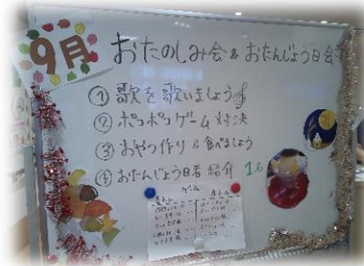 9月 おたのしみ会&おたんじょう日会
① 歌を歌いましょう
② ポコポコゲーム対決
③ おやつ作り&食べましょう
④ おたんじょう日者 紹介 1名
ゲーム